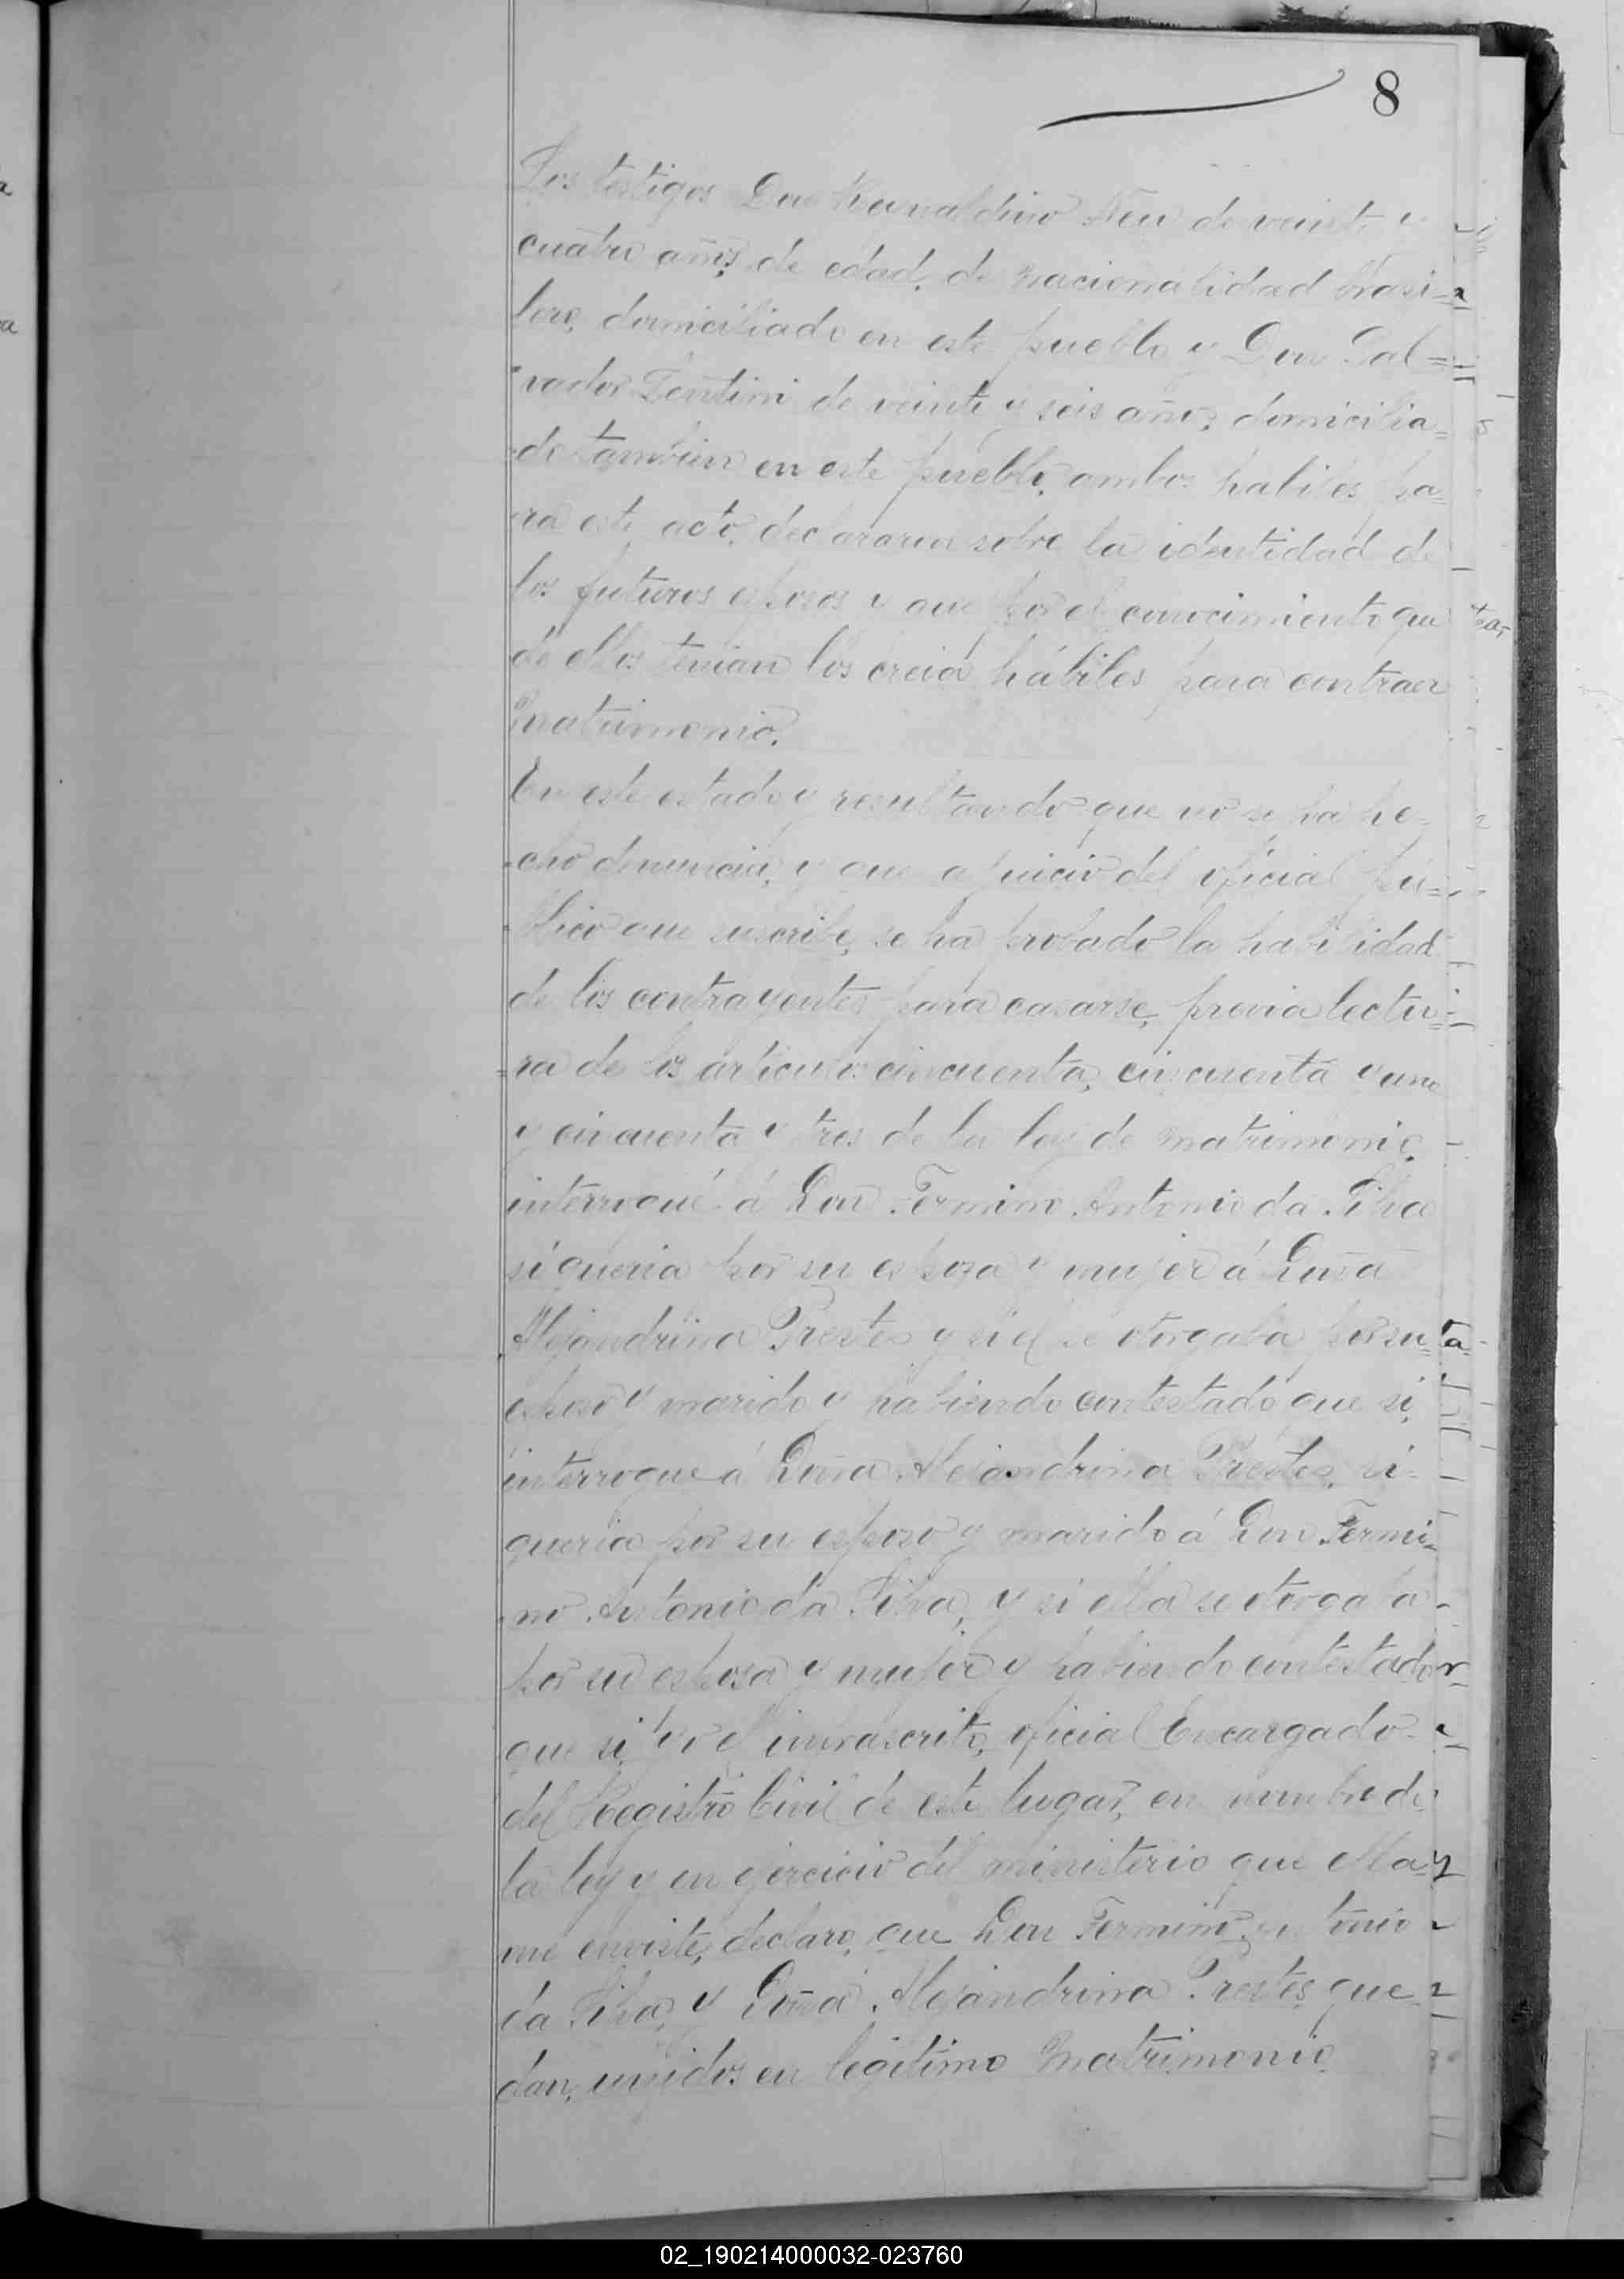 8
Los testigos Don de veinte y
cuatro años de edad, de nacionalidad brasi-
lero, domiciliado en este pueblo y Don Sal=
vador Lentini de veinte y seis años, domicilia=
do tambien en este pueblo, ambos habiles pa=
ra este acto, declararon sobre la identidad de
los futuros esposos y que por el conocimiento que
de ellos tenian los creia hábiles para contraer
matrimonio.
En este estado y resultando que no se ha he-
cho denuncia, y que a juicio del oficial pu=
blico que suscribe, se ha probado la habilidad
de los contrayentes para casarse, previa lectu=
ra de los articulos cincuenta, cincuenta y uno
y cincuenta y tres de la ley de matrimonio,
interrogué á Don Fermino Antonio da Silva
si queria por su esposa y mujer á Doña
Alejandrina Prestes y si el se otorgaba por su
esposo y marido y habiendo contestado que si,
interrogue á Doña Alejandrina Prestes, si
queria por su esposo y marido á Don Fermi=
no Antonio da Silva, y si ella se otorgaba
por su esposa y mujer y habiendo contestado
que si, yo el infrascrito, oficial Encargado
del Registro Civil de este lugar, en nombre de
la ley y en ejercicio del ministerio que ella
me enviste, declaro, que Don Fermino Antonio
da Silva, y Doña Alejandrina Prestes, que=
dan, unidos en legitimo matrimonio.
02_190214000032-023760